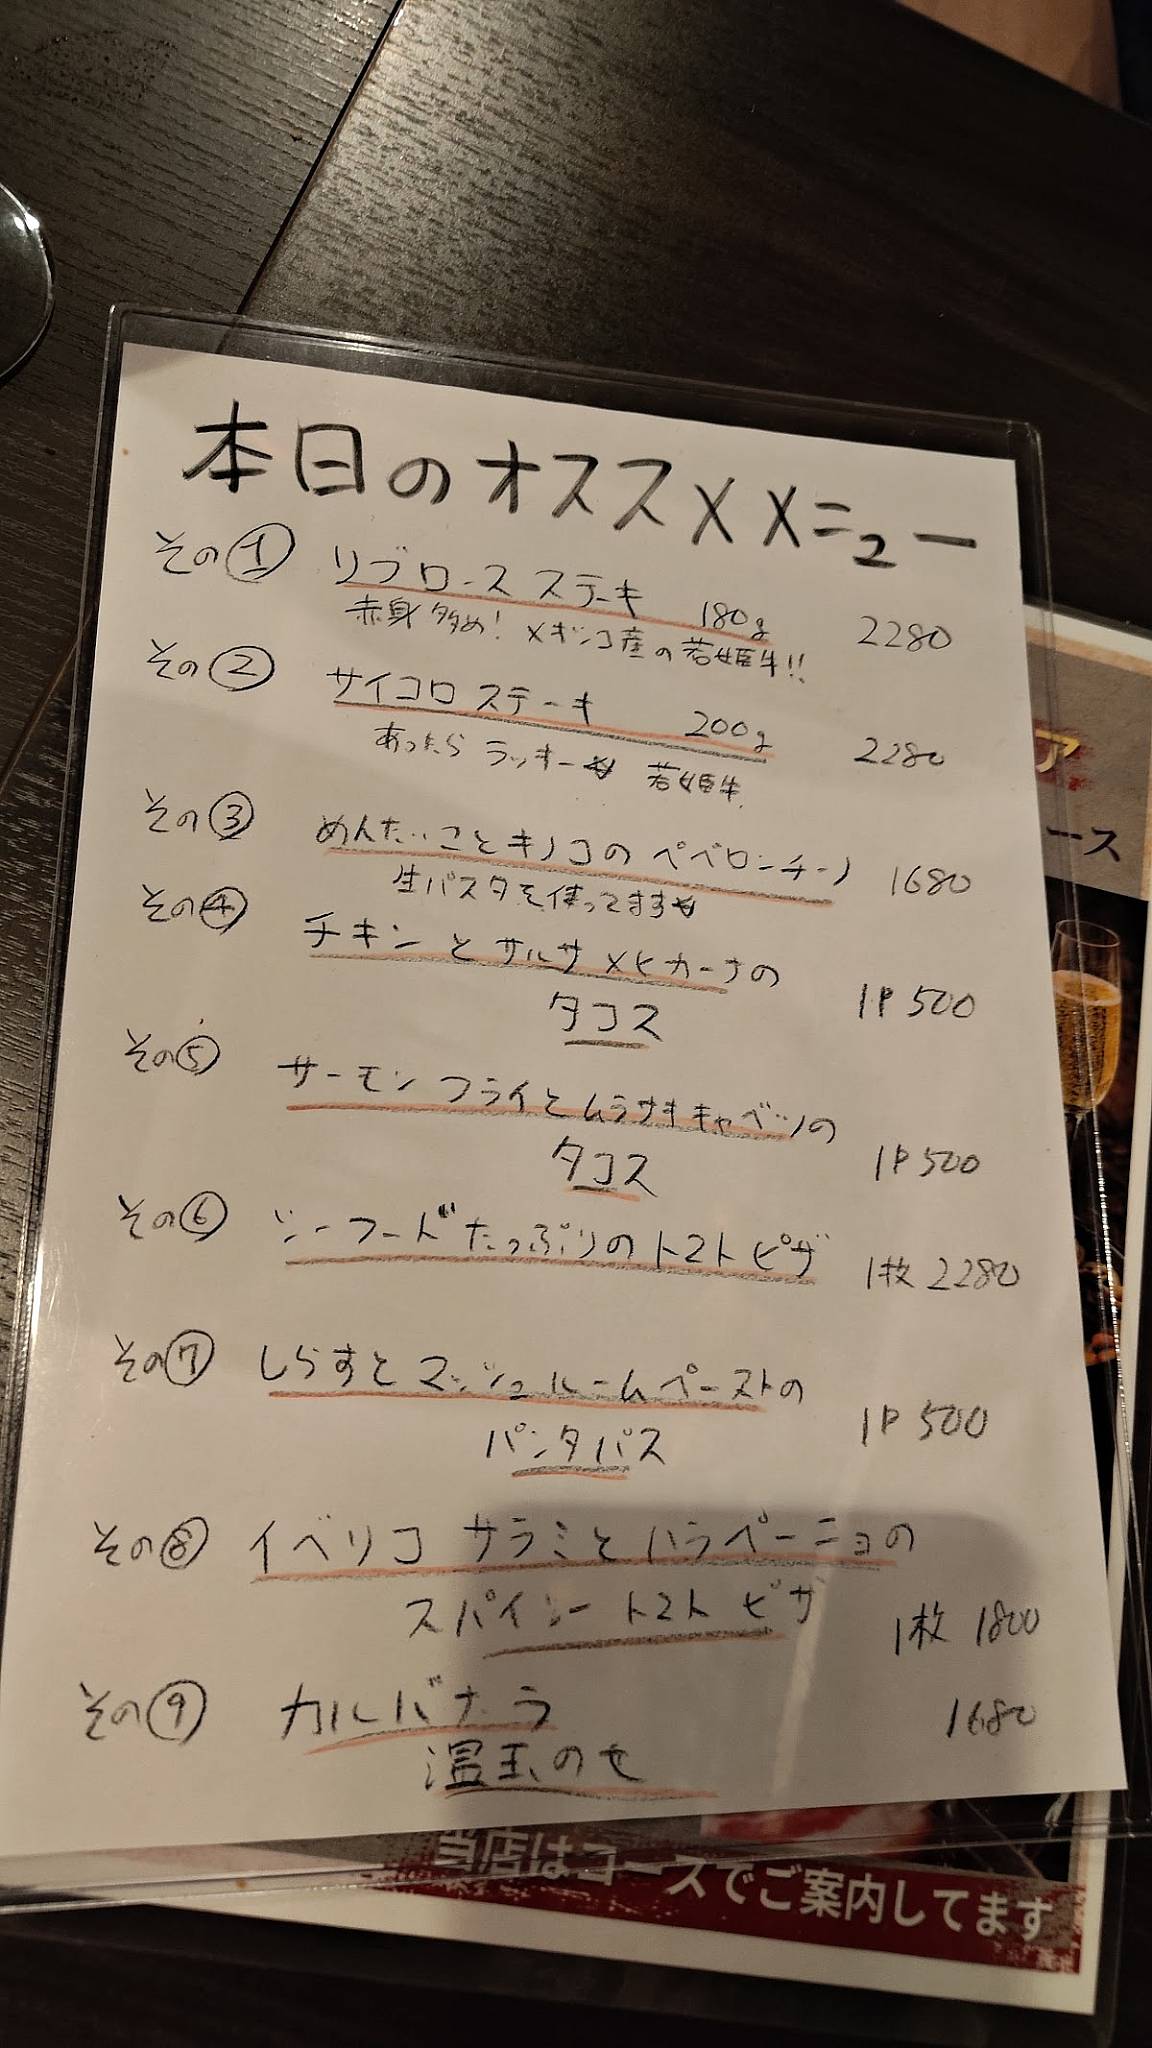 本日のオススメメニュー
その① リブロースステーキ 180g 2280
赤身多め! メキシコ産の若姫牛!!
その② サイコロステーキ 200g 2280
あったらラッキー 若姫牛
その③ めんたいことキノコのペペロンチーノ 1680
生パスタを使ってます
その④ チキンとサルサメヒカーナの
タコス 1P 500
その⑤ サーモンフライとムラサキキャベツの
タコス 1P 500
その⑥ シーフードたっぷりのトマトピザ 1枚 2280
その⑦ しらすとマッシュルームペーストの
パンタパス 1P 500
その⑧ イベリコ サラミとハラペーニョの
スパイシートマトピザ 1枚 1800
その⑨ カルバナーラ 1680
温玉のせ
ア
ース
当店はコースでご案内してます